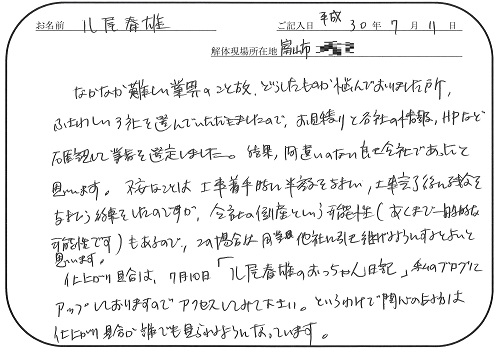 お名前 八尾春雄 ご記入日 平成30年7月11日
解体現場所在地 富山市
なかなか難しい業界のこと故、どうしたものか悩んでおりました所、
ふさわしい3社を選んでいただきましたので、お見積りと各社の情報、HPなど
を確認して業者を選定しました。結果、間違いのない良い会社であったと
思います。不安なことは工事着手時に半額を支払い、工事完了後に残金を
支払う約束をしたのですが、会社の倒産という可能性(あくまで一般的な
可能性です)もあるので、この場合は同業他社に引き継げるようにするとよいと
思います。
仕上がり具合は、7月10日「八尾春雄のおっちゃん日記」私のブログに
アップしておりますのでアクセスしてみて下さい。というわけで関心のある方は
仕上がり具合が誰でも見られるようになっています。